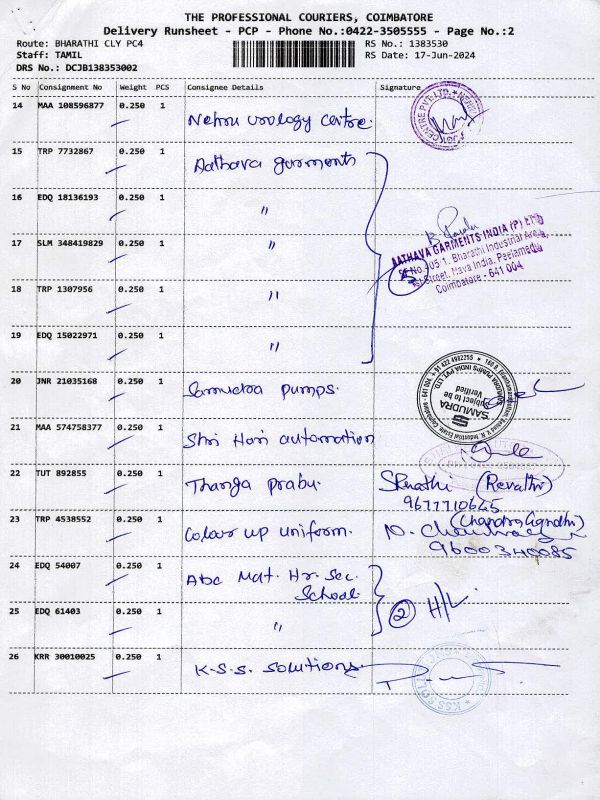 THE PROFESSIONAL COURIERS, COIMBATORE
Delivery Runsheet - PCP - Phone No.:0422-3505555 - Page No.:2
Route: BHARATHI CLY PC4
RS No.: 1383530
Staff: TAMIL
RS Date: 17-Jun-2024
DRS No.: DCJB138353002
S No Consignment No Weight PCS Consignee Details Signature
14 MAA 108596877 0.250 1 Nehru urology centre.
15 TRP 7732867 0.250 1 Aathava garments
16 EDQ 18136193 0.250 1 "
17 SLM 348419829 0.250 1 "
AATHAVA GARMENTS INDIA (P) LTD
Bharathi Industrial Area,
Street, Nava India, Peelamedu
Coimbatore - 641 004
5
18 TRP 1307956 0.250 1 "
19 EDQ 15022971 0.250 1 "
20 JNR 21035168 0.250 1 Samudra pumps.
SAMUDRA
Subject to be
Verified
SAMUDRA PUMPS INDIA PVT LTD
21 MAA 574758377 0.250 1 Shri Hari automation
22 TUT 892855 0.250 1 Thanga prabu. (Revathi)
9677710665
23 TRP 4538552 0.250 1 Colour up uniform. (Chandra Gandhi)
9600340085
24 EDQ 54007 0.250 1 Abc Mat. Hr. Sec.
School
2 H/L
25 EDQ 61403 0.250 1 "
26 KRR 30010025 0.250 1 K.S.S. Solutions